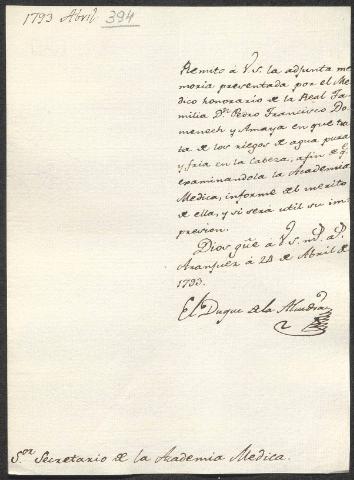 1793 Abril 394
Remito á V.S. la adjunta me
moria presentada por el Me
dico honorario de la Real Fa
milia Dn. Pedro Francisco Do
menech y Amaya en que tra
ta de los riegos de agua pura
y fria en la cabeza, afin de q.e
examinandola la Academia
Medica, informe del merito
de ella, y si será util su im
presion.
Dios gũe á V.S. m.s a.s
Aranjuez á 24 de Abril de
1793.
El Duque de la Alcudia
S.or Secretario de la Academia Medica.